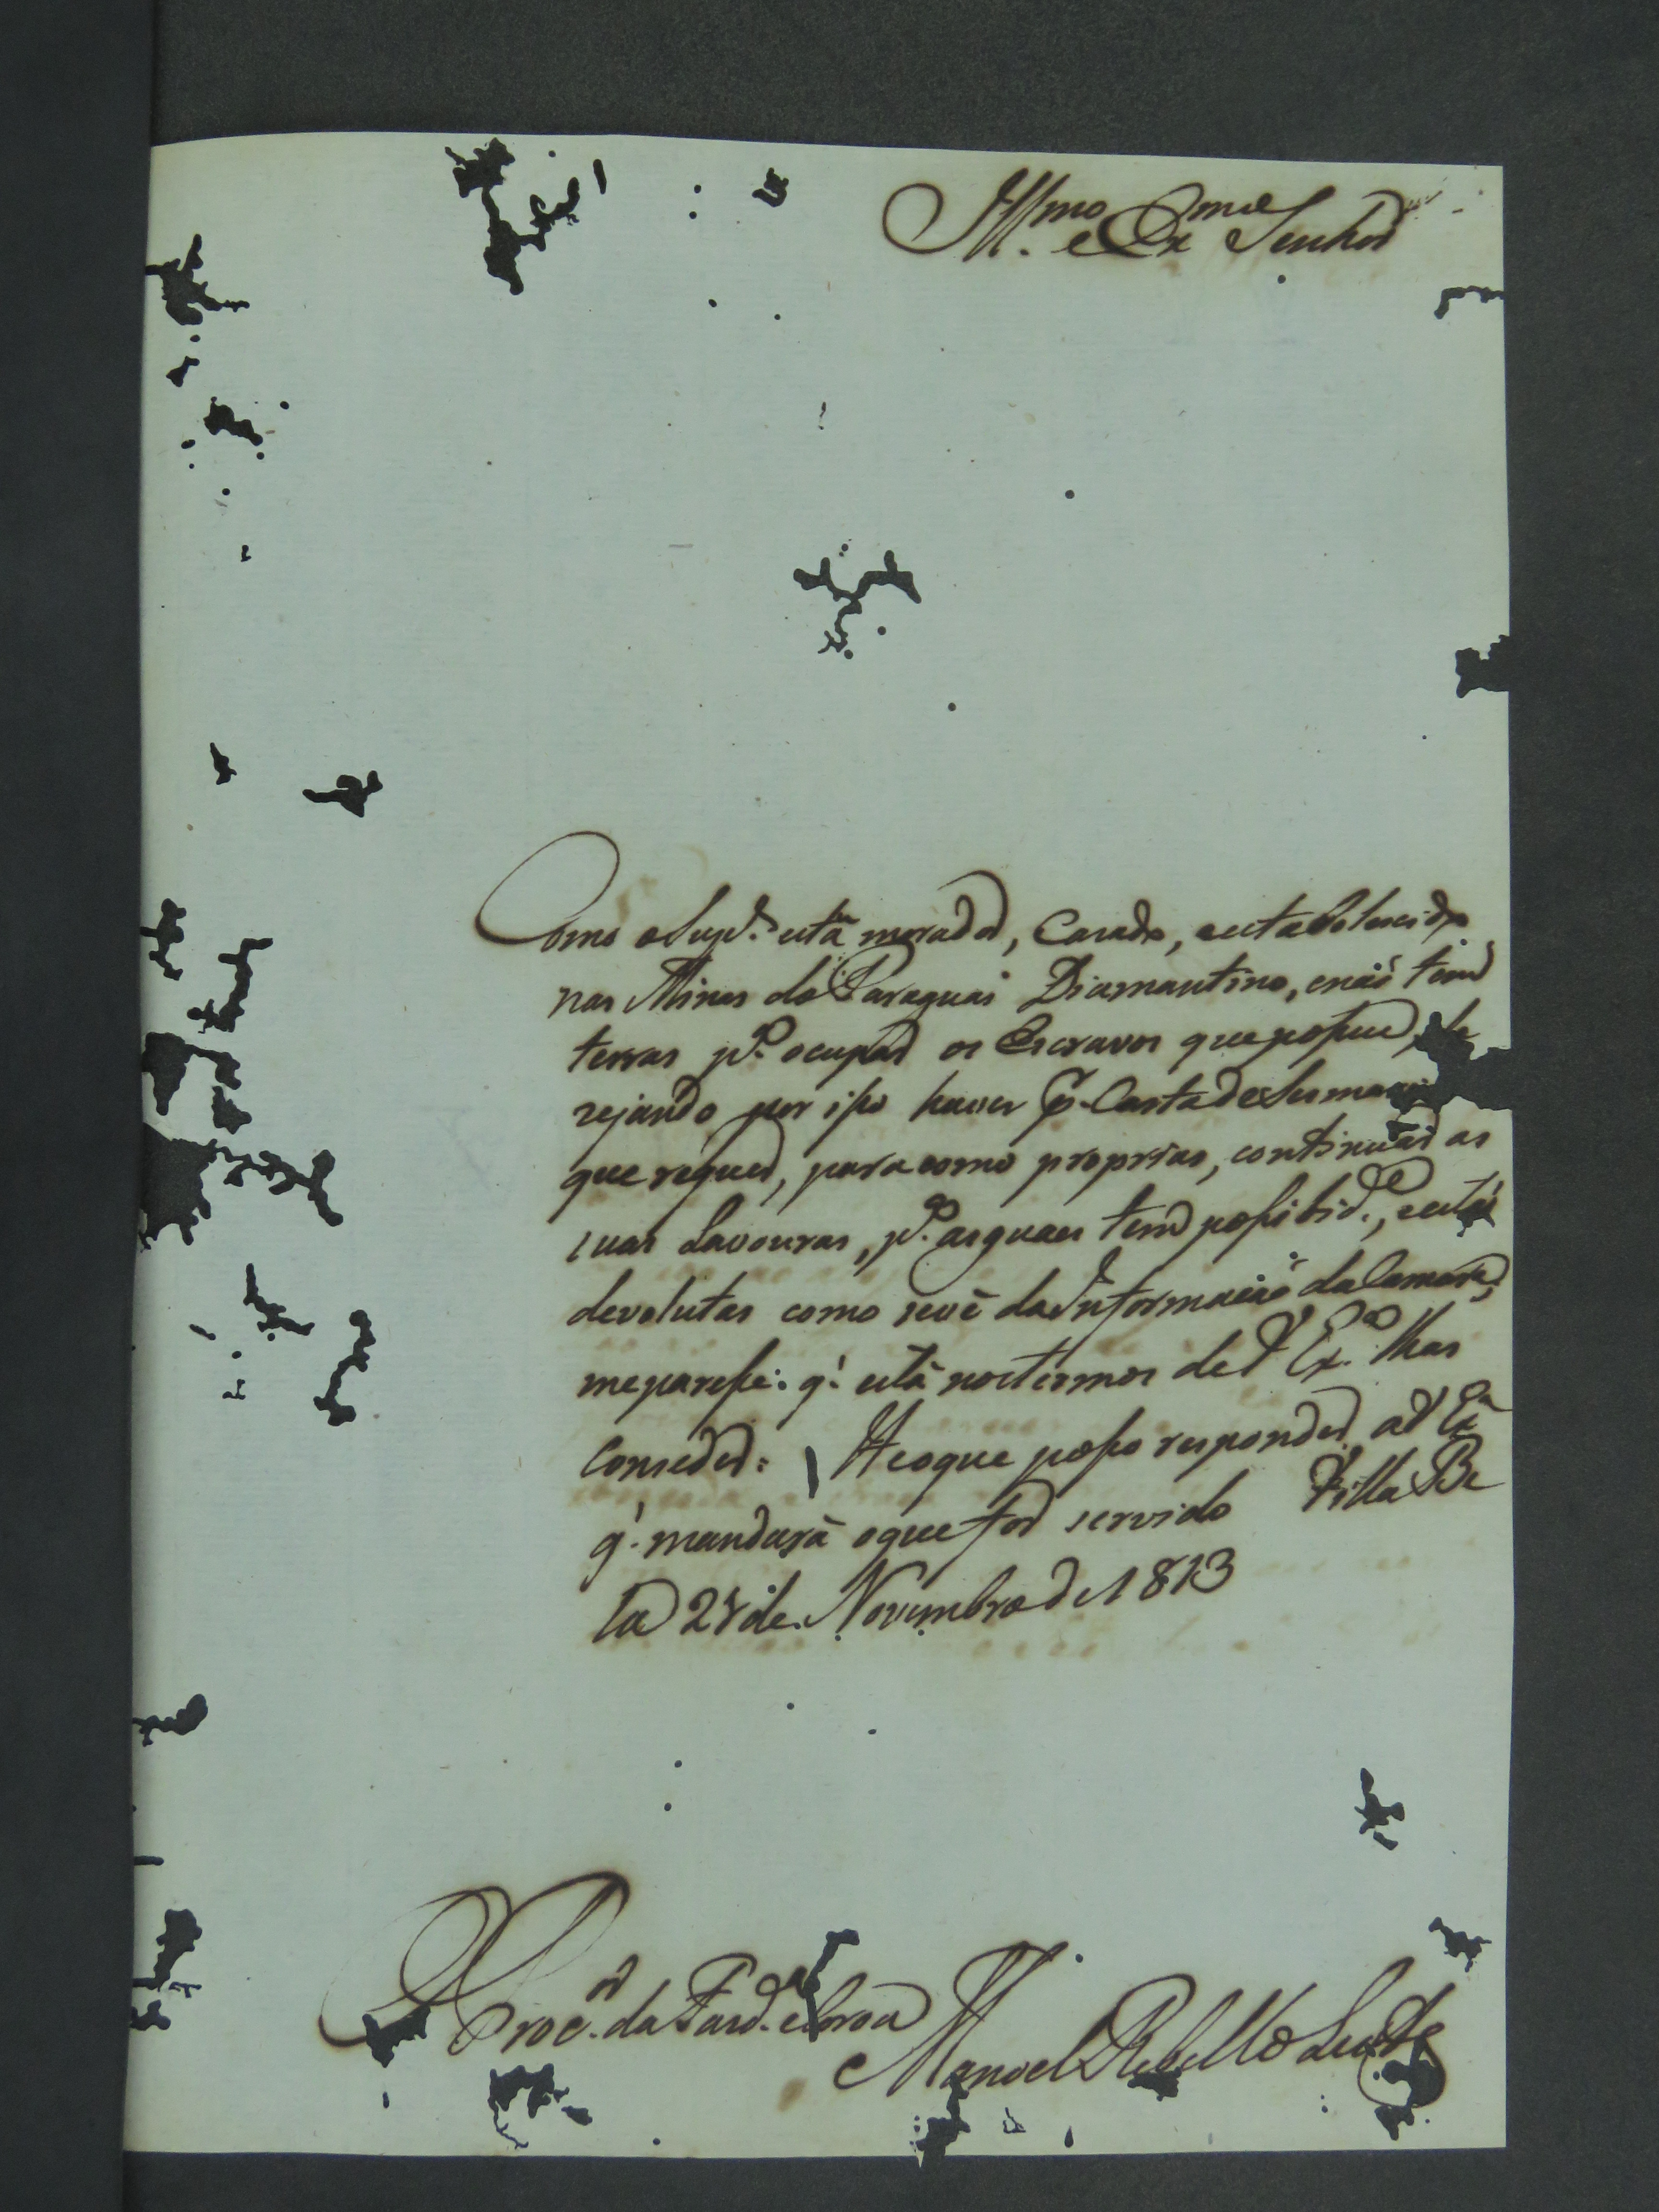 Illmo. e Exmo Senhor
Como o Supe. está morador, Cazado, e estabelescido
nas Minas do Paraguai Diamantino, e naõ tem
terras pa. ocupar os Escravos que possue, de
zejando por isso haver p. Carta de Sesmaria
que requer, para como proprias, continuar as
suas Lavouras, pa. as quaes tem possibide., e estaõ
devolutas como se vê da Informaçaõ da Camara;
me paresse: q'. está nos termos de V Exa. lhas
Conseder: He o que posso responder a V Exa
q'. mandará o que for servido Villa Be
la 28 de Novembro de 1813
O Procor. da Fazda. e Croa
Manoel Rebello Leite